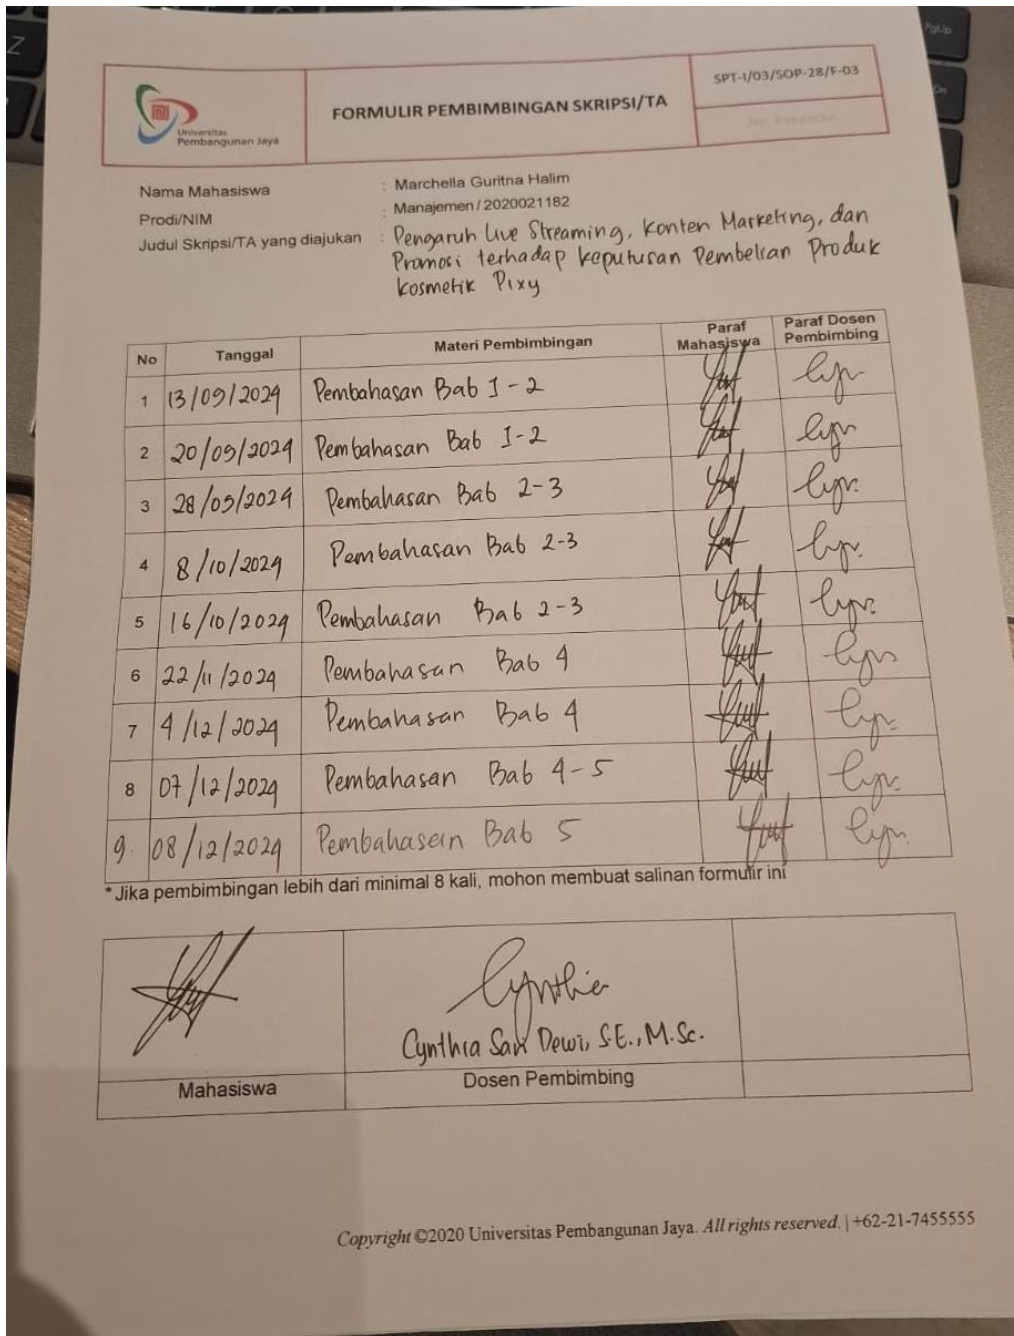 Z
PgUp
Universitas
Pembangunan Jaya
FORMULIR PEMBIMBINGAN SKRIPSI/TA
SPT-I/03/SOP-28/F-03
No. Rekaman
Nama Mahasiswa : Marchella Guritna Halim
Prodi/NIM : Manajemen / 2020021182
Judul Skripsi/TA yang diajukan : Pengaruh Live Streaming, Konten Marketing, dan
Promosi terhadap keputusan Pembelian Produk
kosmetik Pixy
No Tanggal Materi Pembimbingan Paraf Mahasiswa Paraf Dosen Pembimbing
1 13/09/2024 Pembahasan Bab 1-2
2 20/09/2024 Pembahasan Bab 1-2
3 28/09/2024 Pembahasan Bab 2-3
4 8/10/2024 Pembahasan Bab 2-3
5 16/10/2024 Pembahasan Bab 2-3
6 22/11/2024 Pembahasan Bab 4
7 4/12/2024 Pembahasan Bab 4
8 07/12/2024 Pembahasan Bab 4-5
9. 08/12/2024 Pembahasan Bab 5
* Jika pembimbingan lebih dari minimal 8 kali, mohon membuat salinan formulir ini
Cynthia
Cynthia Sari Dewi, S.E., M.Sc.
Mahasiswa Dosen Pembimbing
Copyright ©2020 Universitas Pembangunan Jaya. All rights reserved. | +62-21-7455555